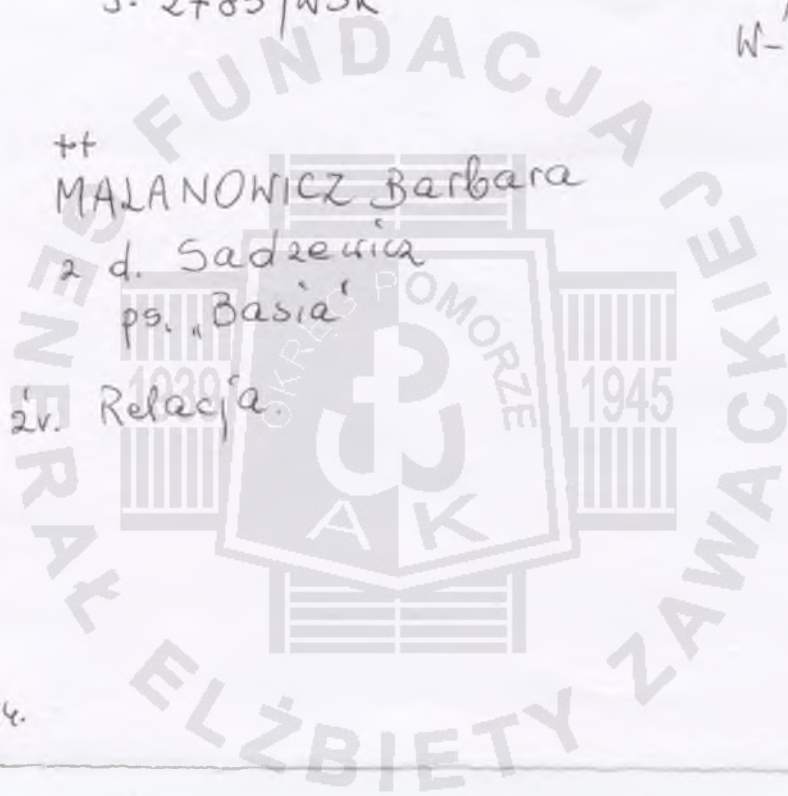 J. 2785/WSK
W-
++
MALANOWICZ Barbara
z d. Sadzewicz
ps. „Basia"
źr. Relacja.
4.
FUNDACJA GENERAŁ ELŻBIETY ZAWACKIEJ
OKRĘG POMORZE
1939 1945
AK